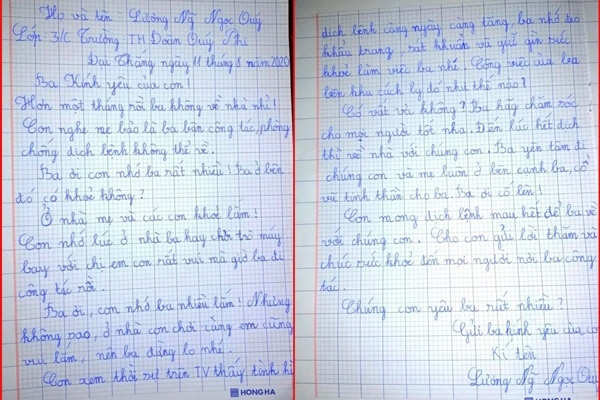 Họ và tên: Lương Ng̃ Ngọc Quý
Lớp: 3/C Trường TH Đoàn Quý Phi
Đại Thắng ngày 11 tháng 8 năm 2020
Ba Kính yêu của con!
Hơn một tháng rồi ba không về nhà nhỉ!
Con nghe mẹ bảo là ba bận công tác, phòng
chống dịch bệnh không thể về.
Ba ơi con nhớ ba rất nhiều! Ba ở bên
đó có khoẻ không?
Ở nhà mẹ và các con khoẻ lắm!
Con nhớ lúc ở nhà ba hay chơi trò máy
bay với chị em con rất vui mà giờ ba đi
công tác rồi.
Ba ơi, con nhớ ba nhiều lắm! Nhưng
không sao, ở nhà con chơi cùng em cũng
vui lắm, nên ba đừng lo nhé.
Con xem thời sự trên TV thấy tình hì
HONG HA
dịch bệnh càng ngày càng tăng, ba nhớ đeo
khẩu trang, sát khuẩn và giữ gìn sức
khoẻ làm việc ba nhé. Công việc của ba
bên khu cách ly đó như thế nào?
Có vất vả không? Ba hãy chăm sóc
cho mọi người tốt nha. Đến lúc hết dịch
thì về nhà với chúng con. Ba yên tâm đi
chúng con và mẹ luôn ở bên cạnh ba, cổ
vũ tinh thần cho ba. Ba ơi cố lên!
Con mong dịch bệnh mau hết để ba về
với chúng con. Cho con gửi lời thăm và
chúc sức khoẻ đến mọi người nơi ba công
tác.
Chúng con yêu ba rất nhiều?
Gửi ba kính yêu của co
Kí tên
Lương Ng̃ Ngọc Quý
HONG HA